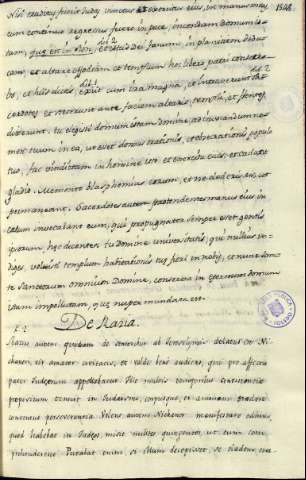 Nisi traditus fuerit Judas vinctus et exercitus eius, in manus meas
cum continuo regressus fuero in pace, incendam domum is-
tam, que est in Sion, et istud Dei fanum in planitiem dedu-
cam, et altare effodiam et templum hoc Libero patri consecra-
bo, et his dictis, exiit cum ira magna, et intraverunt sa-
cerdotes et steterunt ante faciem altaris, templi, et flentes
dixerunt tu elegisti domum istam Domine, ad invocandum no-
men tuum in ea, ut esset domus orationis, et obsecrationis populo
tuo, fac vindictam in homine isto et exercitu eius, et cadant
gladio. Memento blasphemias eorum, et ne dederis eis, ut
permaneant. Sacerdotes autem protendentes manus suas in
caelum invocabant eum, qui propugnator semper esset gentis
ipsorum haec dicentes tu Domine universitatis, qui nullius in-
diges, voluisti templum habitationis tuae fieri in nobis, et nunc sanc-
te sanctorum omnium Domine, conserva in aeternum domum
istam impollutam, quae nuper mundata est.
De Razia.
Razias autem quidam de senioribus ab Ierosolymis delatus est Ni-
chanori, vir amator civitatis, et valde bene audiens, qui pro affectu
pater Judaeorum appellabatur. Hic multis temporibus continentiae
propositum tenuit in Judaismo, corpusque, et animam tradere
contentus pro perseverantia. Volens autem Nichanor manifestare odium,
quod habebat in Judaeos, misit milites quingentos, ut eum com-
prehenderent. Putabat enim, si illum decepisset, se cladem